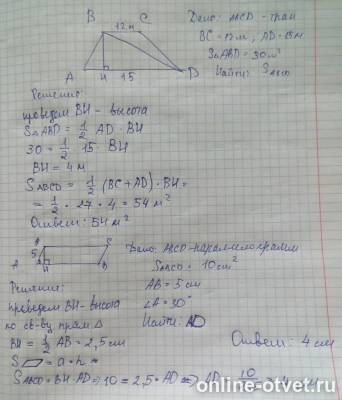 B 12м C
A H 15 D
Дано: ABCD - трап
BC = 12м, AD = 15м
S△ABD = 30м²
Найти: SABCD
Решение:
проведем BH - высота
S△ABD = 1/2 AD · BH
30 = 1/2 · 15 · BH
BH = 4 м
SABCD = 1/2 (BC + AD) · BH =
= 1/2 · 27 · 4 = 54 м²
Ответ: 54 м²
5
A H D
Дано: ABCD - параллелограмм
SABCD = 10 см²
AB = 5 см
∠A = 30°
Найти: AD
Решение:
проведем BH - высота
по св-ву прям △
BH = 1/2 AB = 2,5 см
S▱ = a · h =
SABCD = BH · AD => 10 = 2,5 · AD => AD = 10
Ответ: 4 см
online-otvet.ru